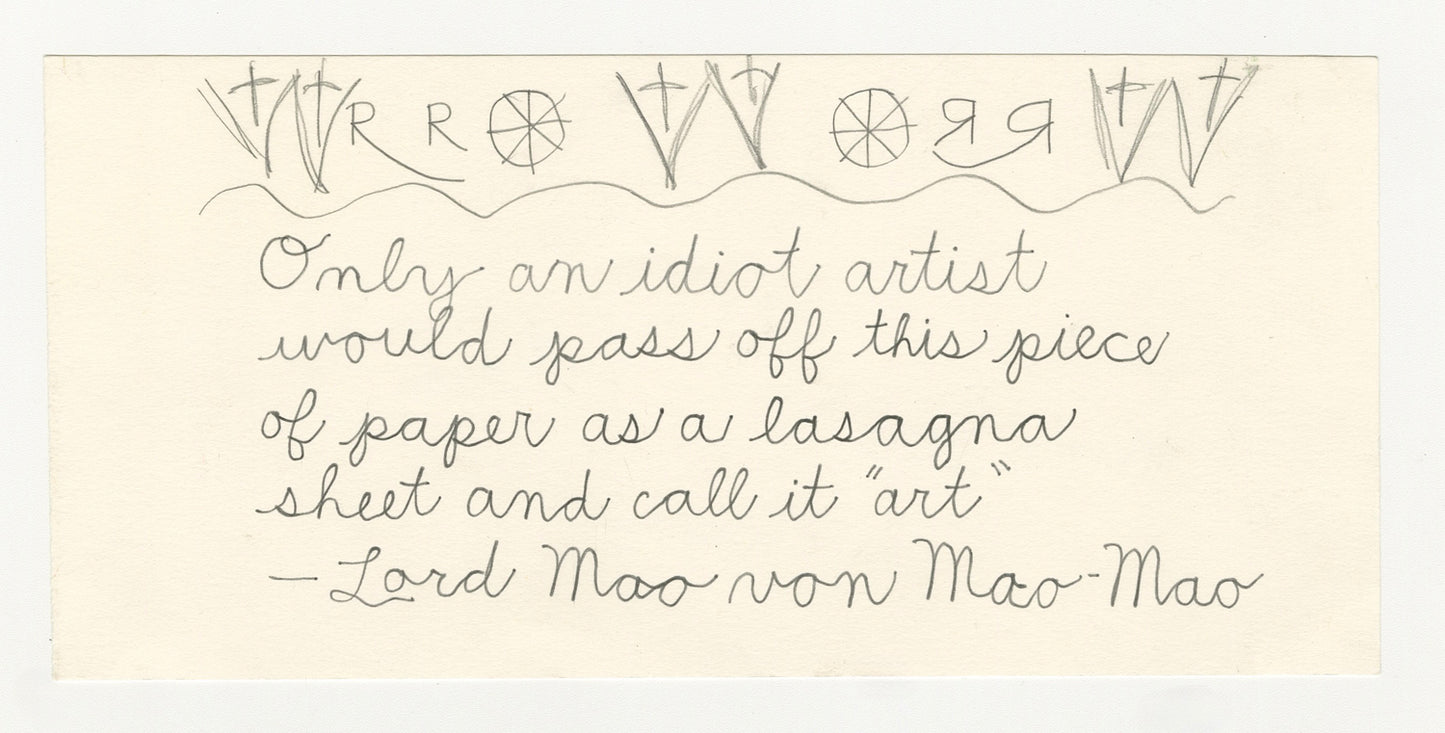 WRRO W ORRW
Only an idiot artist
would pass off this piece
of paper as a lasagna
sheet and call it "art"
— Lord Mao von Mao-Mao